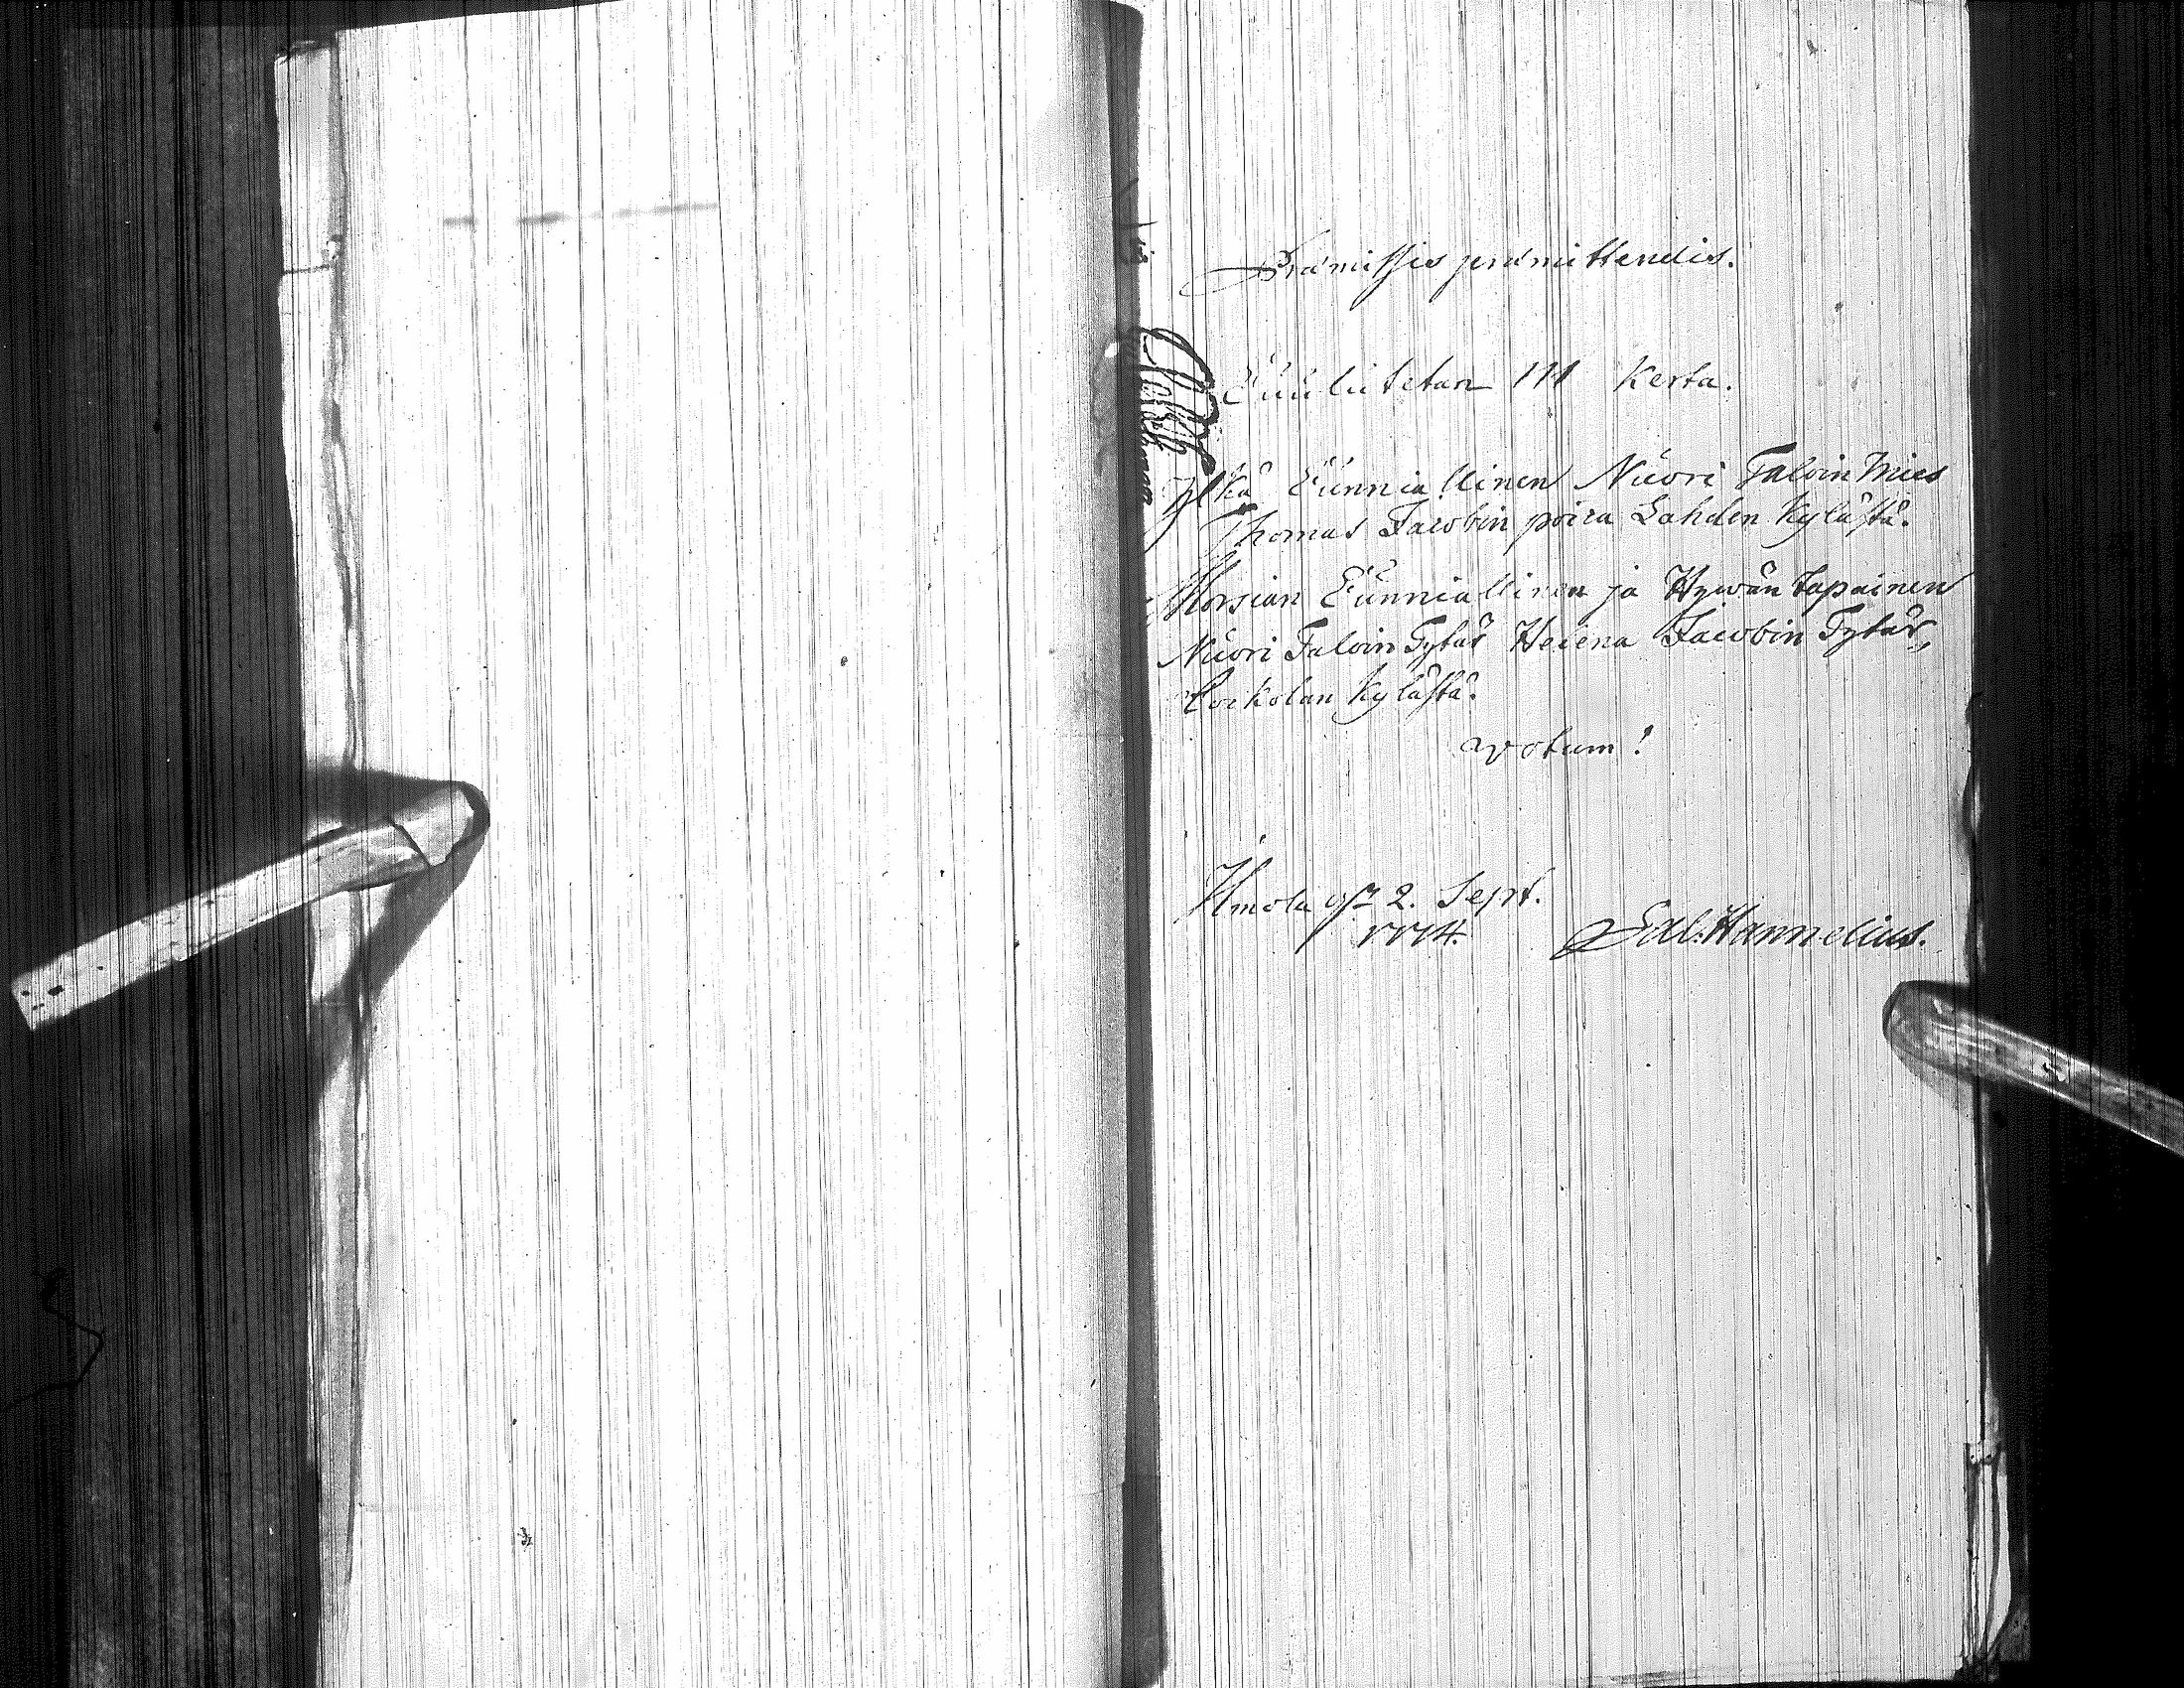 Præmissis præmittendis.
Cuulutetan III Kerta.
Ylkä Cunniallinen Nuori Taloin Mies
Thomas Jacobin poica Lahden Kylästä.
Morsian Cunniallinen ja Hywän tapainen
Nuori Taloin Tytär Helena Jacobin Tytär,
Cockolan Kylästä.
votum!
Ilmola 2. Sept.
1774. Hannelius.